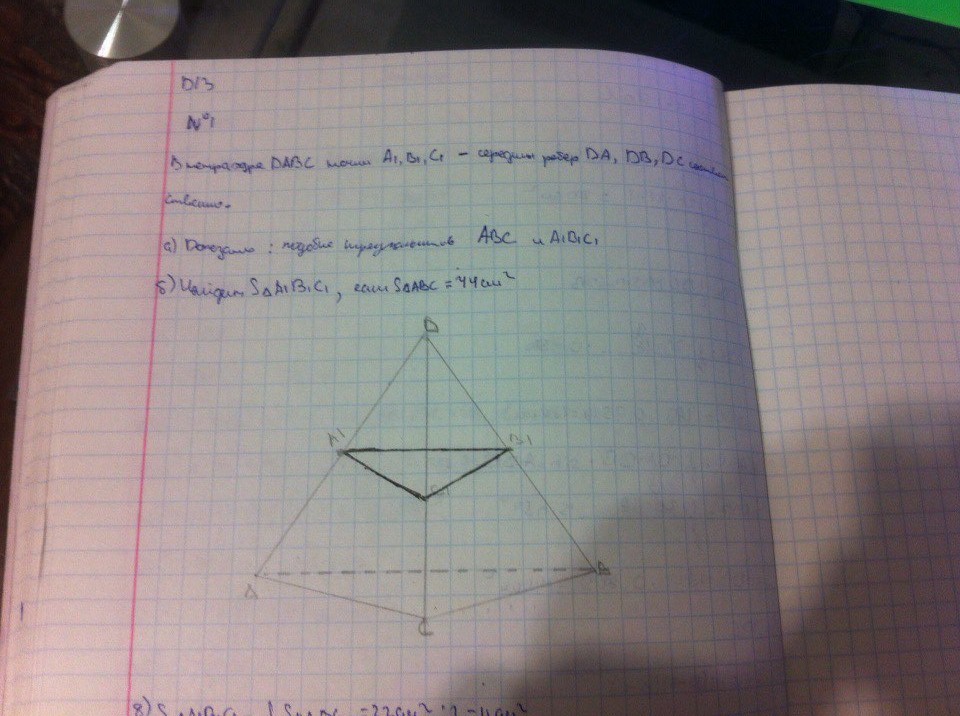 D/З
№1
В тетраэдре DABC точки A1, B1, C1 – середины рёбер DA, DB, DC соответ
ственно.
а) Доказать: подобие треугольников ABC и A1B1C1
б) Найдите S∆A1B1C1, если S∆ABC = 44см²
D
A1
B1
C1
A
B
C